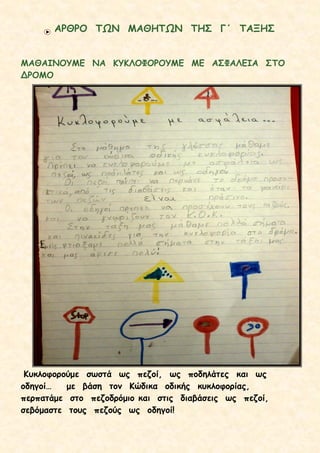 ΑΡΘΡΟ ΤΩΝ ΜΑΘΗΤΩΝ ΤΗΣ Γ΄ ΤΑΞΗΣ
ΜΑΘΑΙΝΟΥΜΕ ΝΑ ΚΥΚΛΟΦΟΡΟΥΜΕ ΜΕ ΑΣΦΑΛΕΙΑ ΣΤΟ
ΔΡΟΜΟ
Κυκλοφορούμε με ασφάλεια...
Στο μάθημα της γλώσσας μάθαμε
για τον κώδικα οδικής κυκλοφορίας.
Πρέπει να κυκλοφορούμε με ασφάλεια ως
πεζοί, ως ποδηλάτες και ως οδηγοί
Οι πεζοί πρέπει να περνάνε το δρόμο
από τις διαβάσεις και όταν το
των πεζών είναι πράσινο.
Οι οδηγοί πρέπει να προσέχουν τους πεζούς
και να γνωρίζουν τον Κ.Ο.Κ.
Στην τάξη μας μάθαμε πολλά σήματα
και πινακίδες για την κυκλοφορία στο δρόμο.
Εμείς φτιάξαμε πολλά σήματα στην τάξη μας
και μας άρεσε πολύ!
STOP
Κυκλοφορούμε σωστά ως πεζοί, ως ποδηλάτες και ως
οδηγοί... με βάση τον Κώδικα οδικής κυκλοφορίας,
περπατάμε στο πεζοδρόμιο και στις διαβάσεις ως πεζοί,
σεβόμαστε τους πεζούς ως οδηγοί!